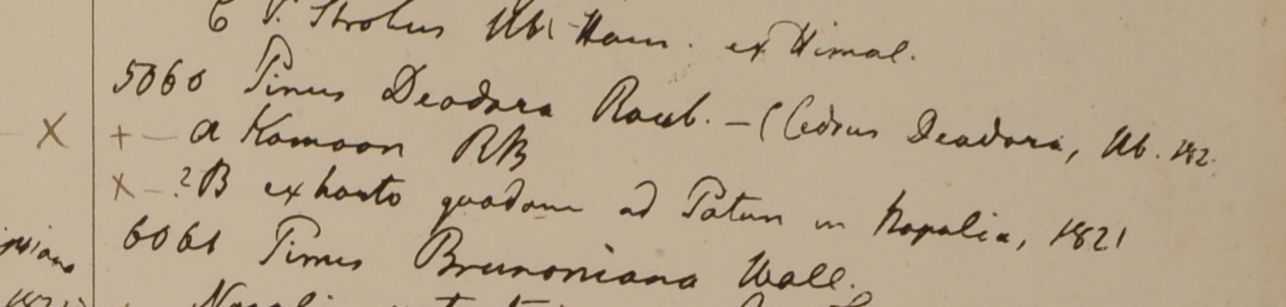 C P. Strobus Hb. Ham. ex Himal.
5060 Pinus Deodara Roxb. - (Cedrus Deodara, Hb. 182
X + - a Kamaon RB
X - ? B ex horto quodam ad Patun in Napalia, 1821
6061 Pinus Brunoniana Wall.